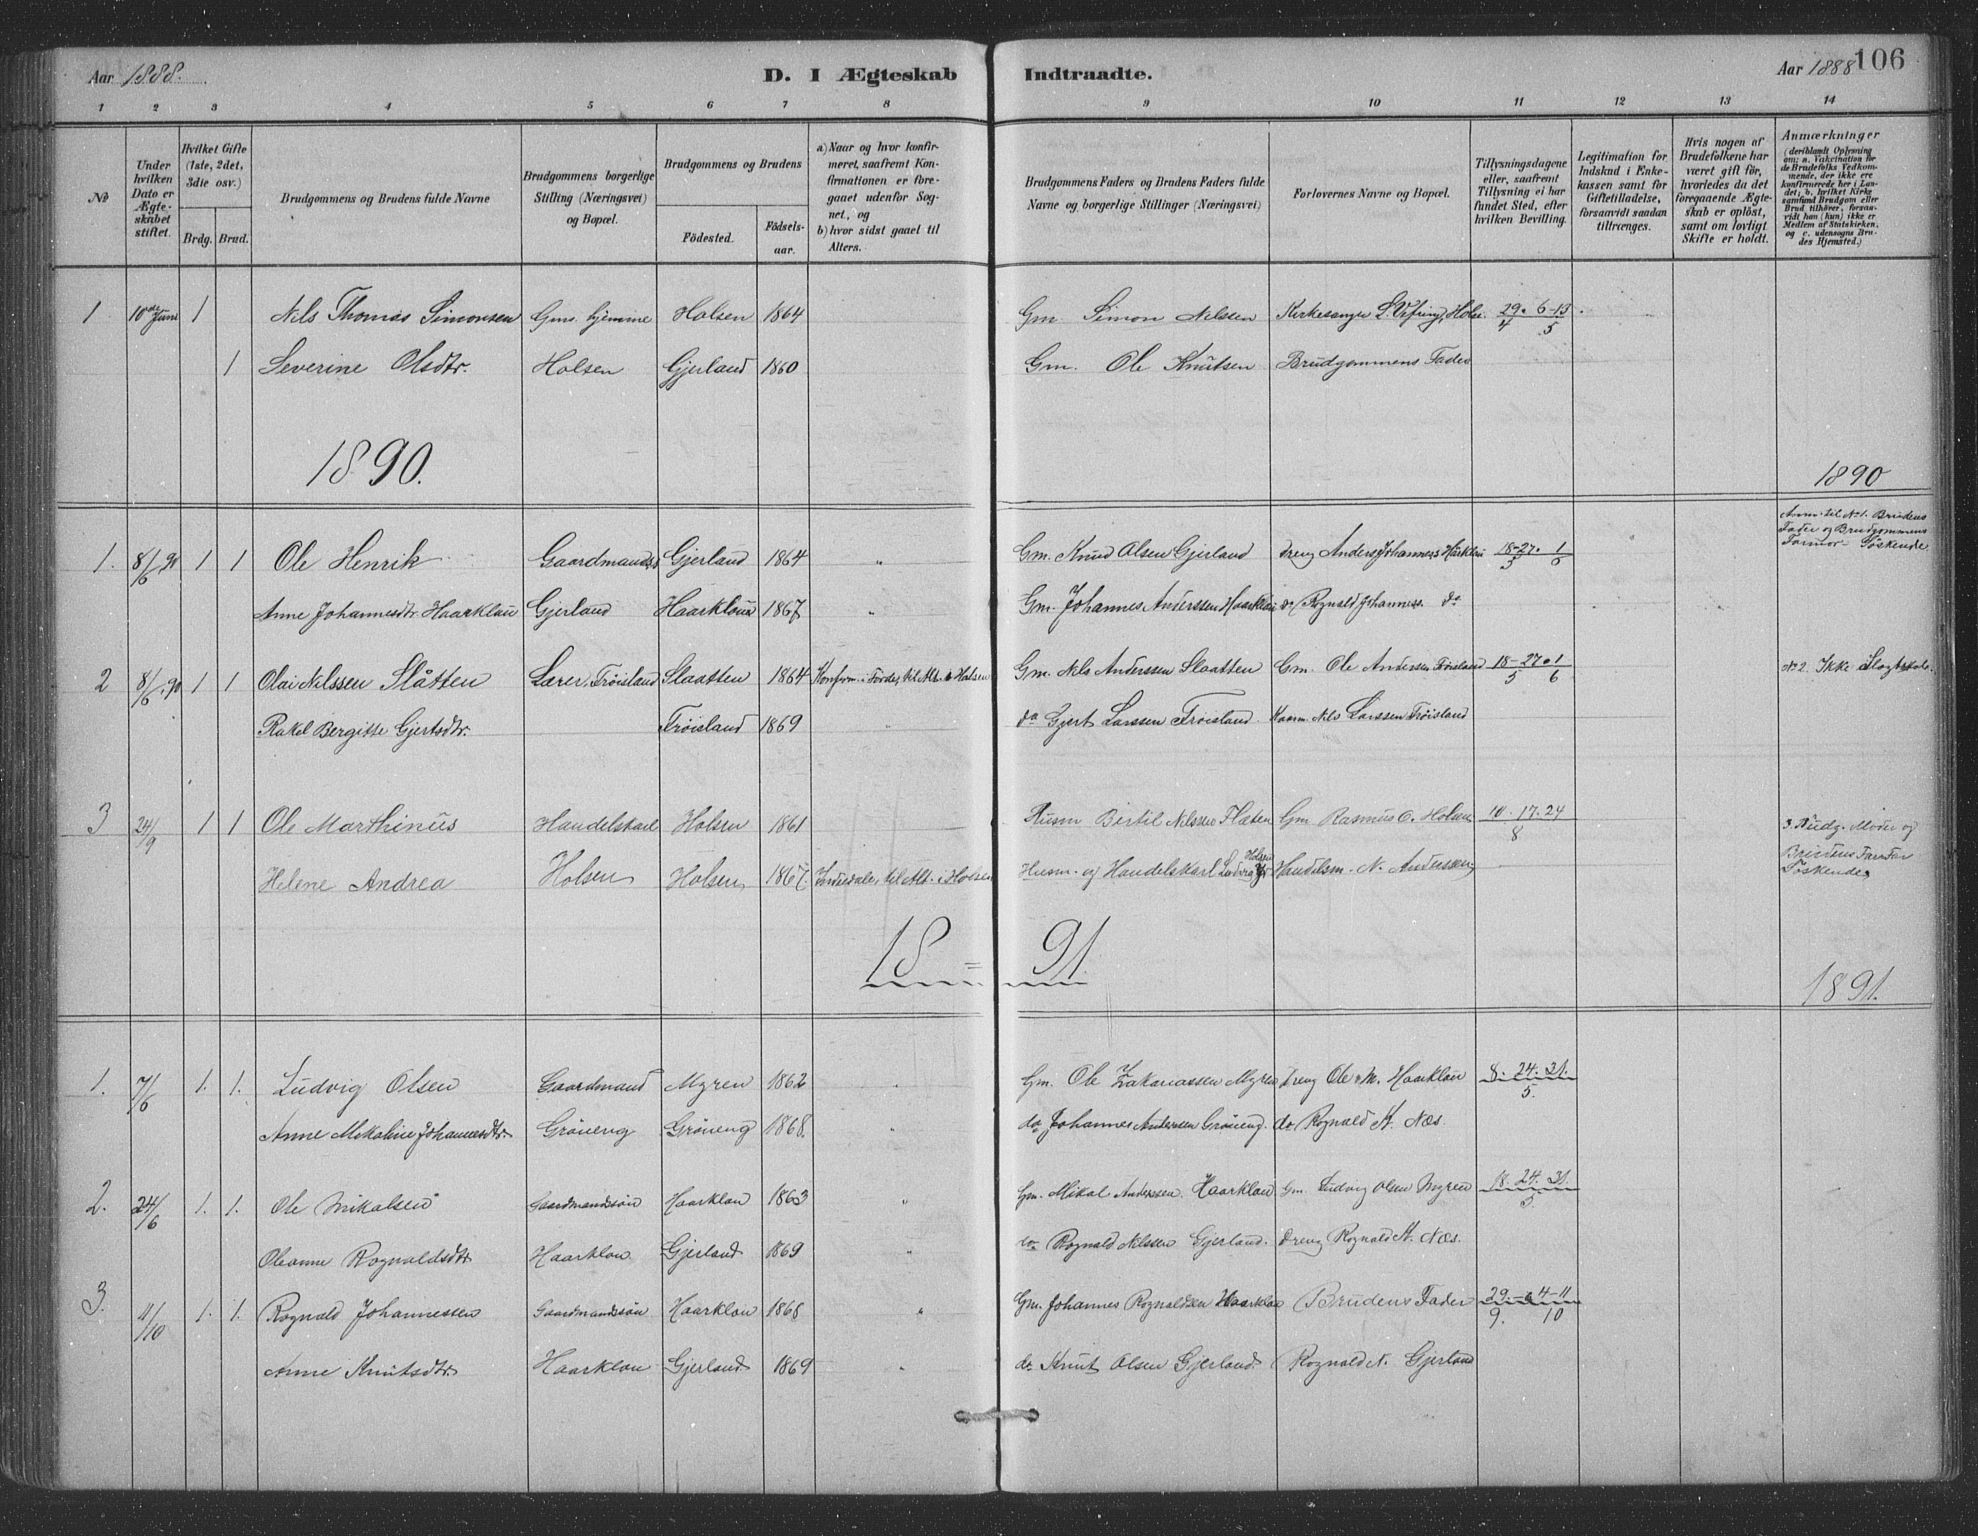 Aar 1888. D. I Ægteskab Indtraadte. Aar 1888 106
1 2 3 4 5 6 7 8 9 10 11 12 13 14
№
Under hvilken Dato er Ægteskabet stiftet.
Hvilket Gifte (1ste, 2det, 3die osv.)
Brdg. Brud.
Brudgommens og Brudens fulde Navne
Brudgommens borgerlige Stilling (Næringsvei) og Bopæl.
Brudgommens og Brudens
Fødested. Fødselsaar.
a) Naar og hvor konfirmeret, saafremt Konfirmationen er foregaaet udenfor Sognet, og
b) hvor sidst gaaet til Alters.
Brudgommens Faders og Brudens Faders fulde Navne og borgerlige Stillinger (Næringsvei)
Forlovernes Navne og Bopæl.
Tillysningsdagene eller, saafremt Tillysning ei har fundet Sted, efter hvilken Bevilling.
Legitimation for Indskud i Enkekassen samt for Giftetilladelse, forsaavidt saadan tiltrænges.
Hvis nogen af Brudefolkene har været gift før, hvorledes da det foregaaende Ægteskab er opløst, samt om lovligt Skifte er holdt.
Anmærkninger (deriblandt Oplysning om: a. Vakcination for de Brudefolks Vedkommende, der ikke ere konfirmerede her i Landet; b. hvilket Kirkesamfund Brudgom eller Brud tilhører, forsaavidt han (hun) ikke er Medlem af Statskirken, og c. udensogns Brudes Hjemsted.)
1 10de Juni 1 Nils Thomas Simonsen Gms. hjemme Holsen 1864 Gm Simon Nilssen Kirkesanger Holse. 29. 6-13 / 4 5
1 Severine Olsdtr. Holsen Gjerland 1860 Gm. Ole Knutsen Brudgommens Fader
1890. 1890
1. 8/6 90 1 1 Ole Henrik Gaardmands Gjerland 1864 " Gm. Knud Olsen Gjerland Dreng Anders Johannes Haarklau 18-27. 1 / 5 6 Anm. til No 1. Brudens Fader og Brudgommens Farmor Søskende
Anne Johannesdtr Haarklau Gjerland Haarklou 1867 " Gm. Johannes Anderssen Haarklau do Rognald Johanness. do
2 8/6 90 1 1 Olai Nilssen Slåtten Lærer, Trøisland Slaatten 1864 Konfirm. i Førde, til Alt. i Holsen Gm. Nils Anderssen Slaatten Gm. Ole Andersen Trøisland 18-27. 1 / 5 6 No 2. Ikke Slegtskab.
Rakel Bergitte Gjertsdtr. Trøisland 1869 " do Gjert Larssen Trøisland Kaarm. Nils Larssen Trøisland
3 24/9 1 1 Ole Marthinus Handelskarl Holsen 1861 Husm Bertil Nilssen Flaten Gm Rasmus O. Holsen 10. 17. 24 / 8 3. Brudg. Moder og
Helene Andrea Holsen Holsen 1867. til Alt. i Holsen Husm. og Handelskarl Ludvig Holsen Handelsm. N. Anderssen Brudens Farfar Søskende
18 = 91. 1891.
1. 7/6 1. 1. Ludvig Olsen Gaardmand Myren 1862 " Gm. Ole Zakariassen Myren Dreng Ole M. Haarklou 8. 24. 31. / 5.
Anne Mikaline Johannesdtr. Grøneng Grøneng 1868. " do Johannes Anderssen Grøneng. do Rognald A. Næs.
2. 24/6 1. 1. Ole Mikalsen Gaardmandssøn Haarklou 1863 " Gm. Mikal Anderssen Haarklou Gm. Ludvig Olsen Myren 18. 24. 31. / 5
Oleanne Rognaldsdtr Haarklou Gjerland 1869 " do Rognald Nilssen Gjerland. Dreng Rognald A. Næs.
3. 11/10 1. 1. Rognald Johannessen Gaardmandssøn Haarklou 1868 " Gm. Johannes Rognaldsen Haarklou Brudens Fader 29.-4-11 / 9. 10
Anne Knutsdtr. Haarklou Gjerland 1869 " do Knut Olsen Gjerland Rognald N. Gjerland